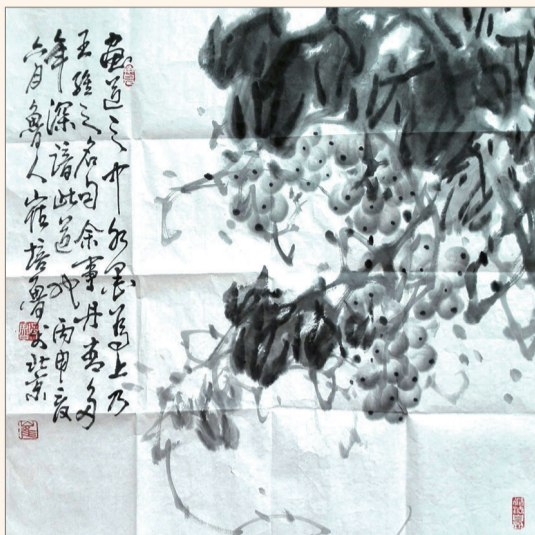 畫道之中水墨為上乃
王維之名句余事丹青多
年深諳此道也丙申夏
六月魯人崔培魯於北京